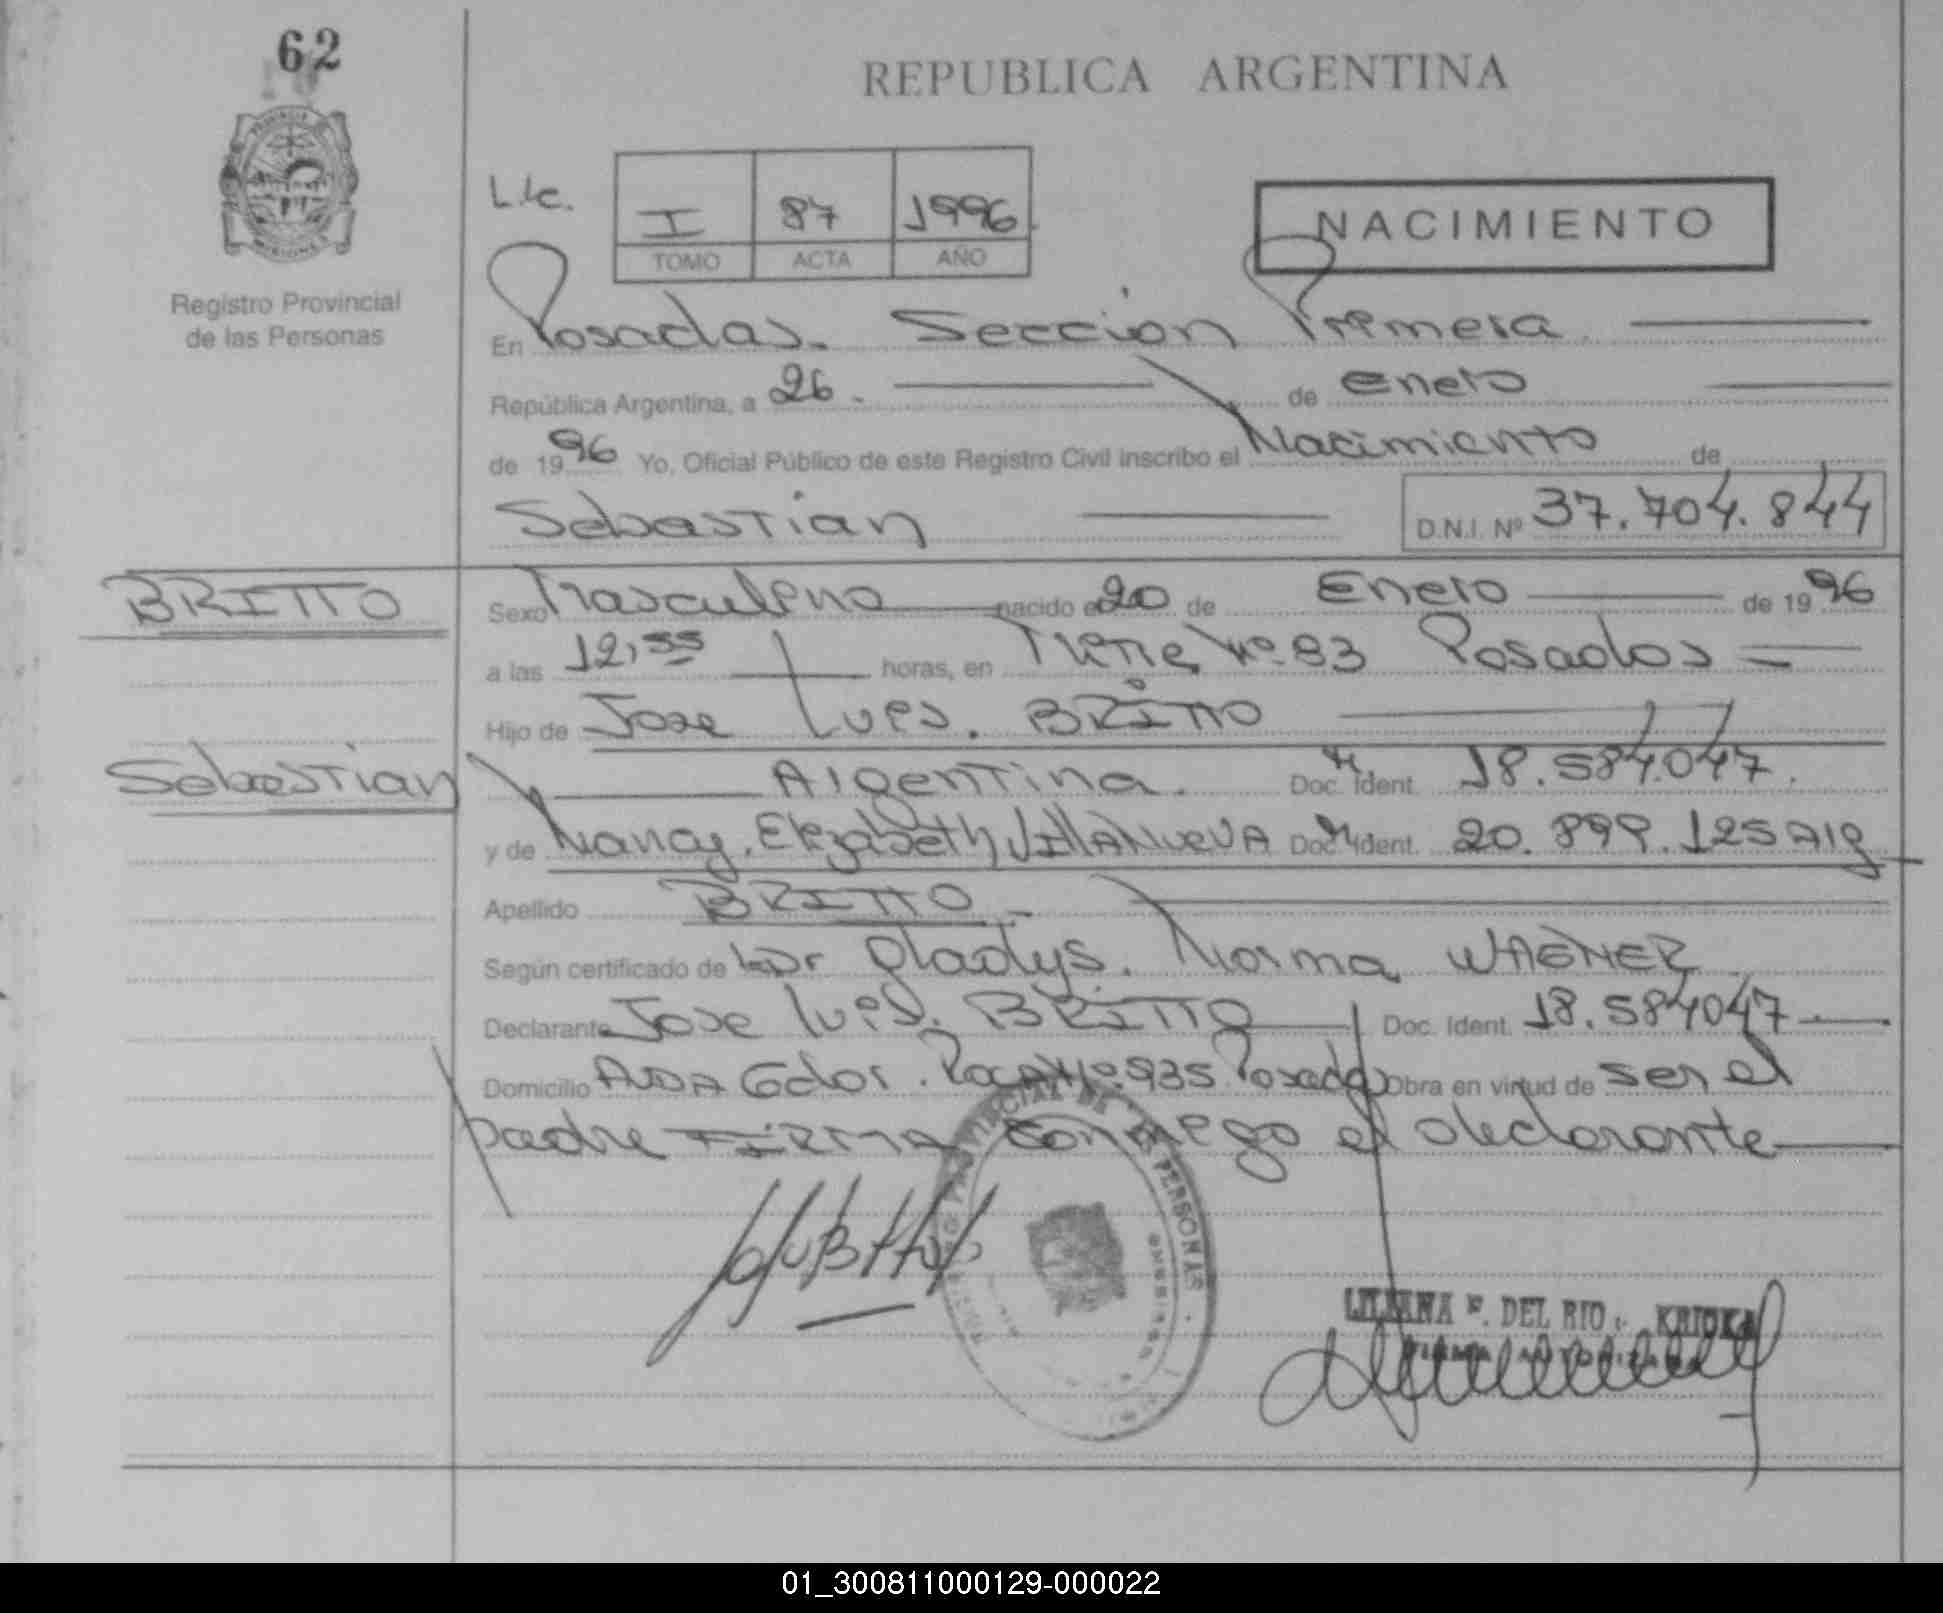 62
REPUBLICA ARGENTINA
L.le. I 87 1996
TOMO ACTA AÑO
NACIMIENTO
Registro Provincial
de las Personas
En Posadas. Seccion Primera
República Argentina, a 26. de enero
de 1996 Yo, Oficial Público de este Registro Civil inscribo el Nacimiento de
Sebastian D.N.I. Nº 37.704.844
BRITTO
Sexo Masculino nacido el 20 de Enero de 1996
a las 12,55 horas, en Nº 93 Posadas
Hijo de Jose Luis. BRITTO
Sebastian
Argentina. Doc. Ident. 18.584.047.
y de Nancy. Elizabeth VILLANUEVA Doc. Ident. 20.899.125 Arg
Apellido BRITTO
Según certificado de Gladys. Norma WAGNER
Declarante Jose Luis. BRITTO Doc. Ident. 18.584047
Domicilio Gdor. Roca Nº 935 Posadas Obra en virtud de ser el
padre FIRMA conmigo el declarante
PROVINCIAL DE LAS PERSONAS
LILIANA F. DEL RIO
01_300811000129-000022